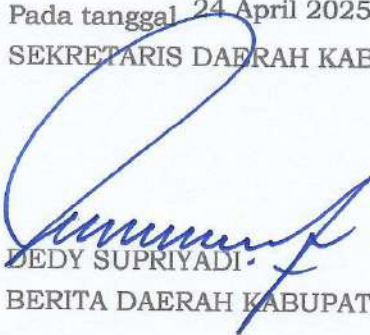 Pada tanggal 24 April 2025
SEKRETARIS DAERAH KAB
DEDY SUPRIYADI
BERITA DAERAH KABUPAT